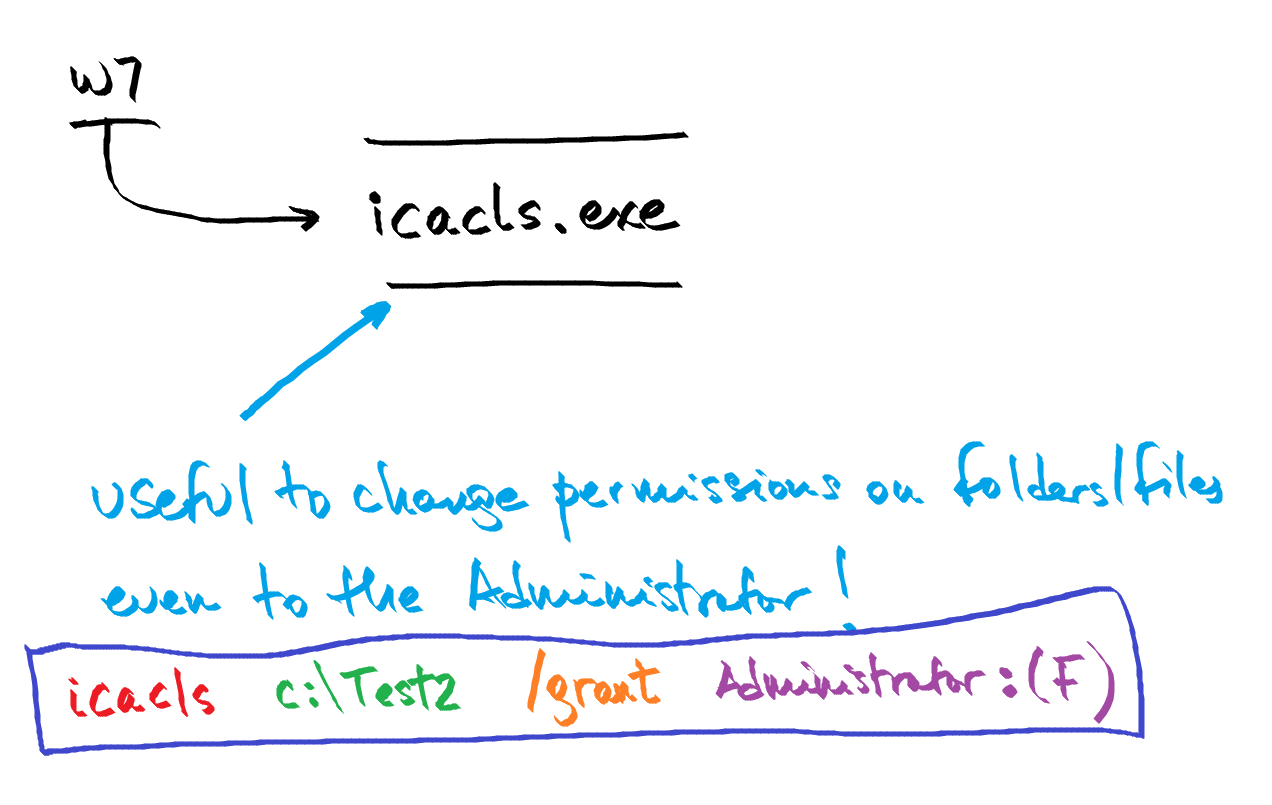 W7
icacls.exe
useful to change permissions on folders/files
even to the Administrator!
icacls c:\Test2 /grant Administrator:(F)